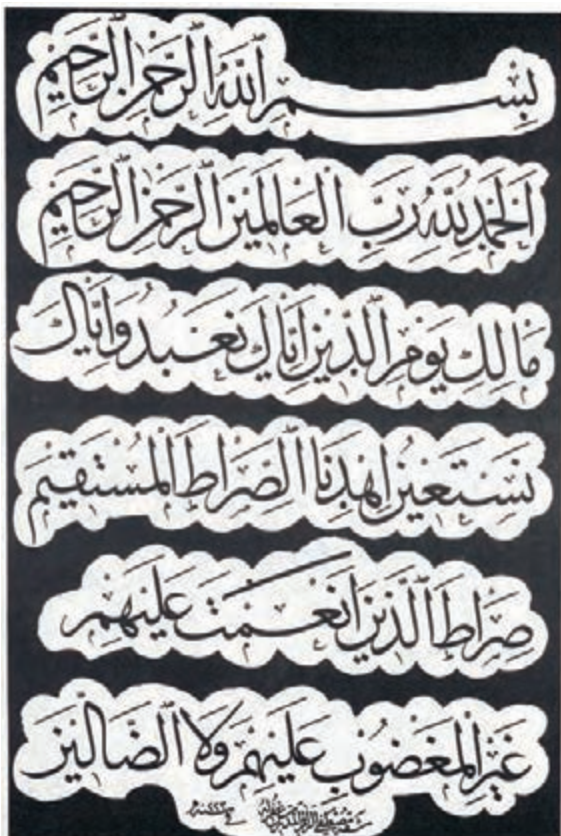 بِسْمِ اللهِ الرَّحْمٰنِ الرَّحِيْمِ
اَلْحَمْدُ لِلّٰهِ رَبِّ الْعَالَمِيْنَ الرَّحْمٰنِ الرَّحِيْمِ
مَالِكِ يَوْمِ الدِّيْنِ اِيَّاكَ نَعْبُدُ وَاِيَّاكَ
نَسْتَعِيْنُ اِهْدِنَا الصِّرَاطَ الْمُسْتَقِيْمَ
صِرَاطَ الَّذِيْنَ اَنْعَمْتَ عَلَيْهِمْ
غَيْرِ الْمَغْضُوْبِ عَلَيْهِمْ وَلَا الضَّالِّيْنَ